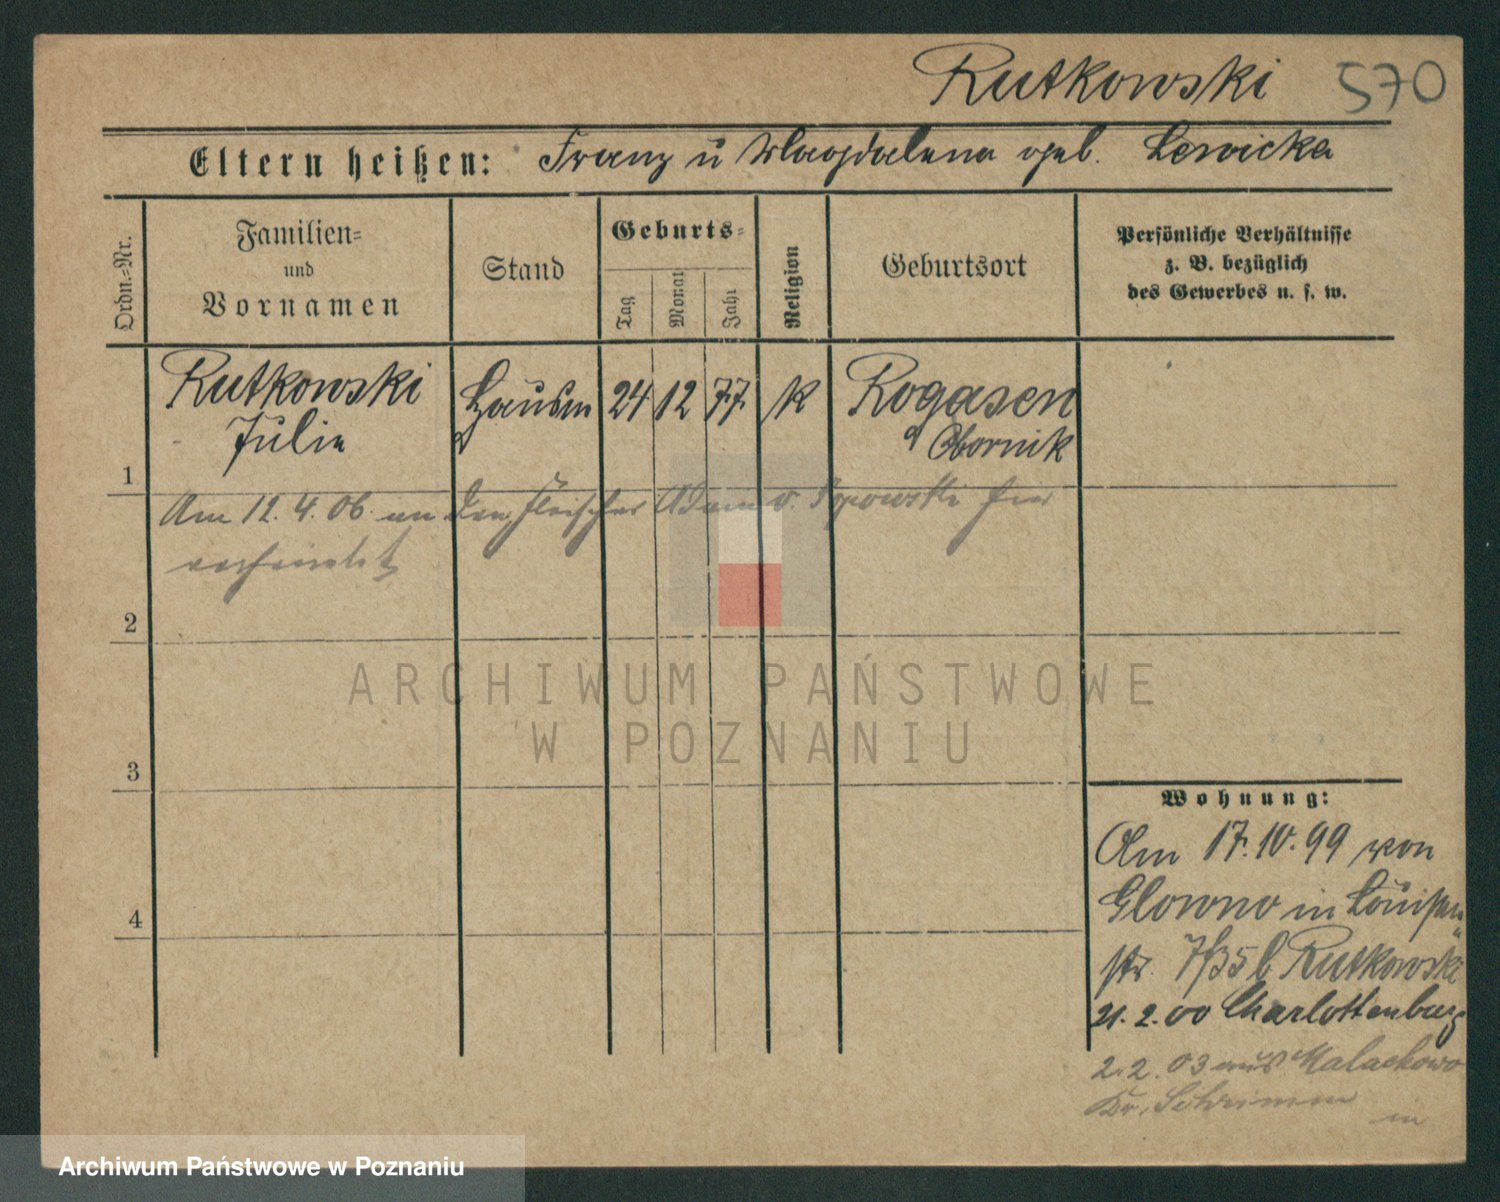 Rutkowski 570
Eltern heißen: Franz u Magdalena geb. Lewicka
Ordn.-Nr.
Familien-
und
Vornamen
Stand
Geburts-
Tag
Monat
Jahr
Religion
Geburtsort
Persönliche Verhältnisse
z. B. bezüglich
des Gewerbes u. s. w.
Rutkowski 24 12 77 K Rogasen
Julie Obornik
1
Am 12. 4. 06 an den Fleischer Adam v. hier
verheiratet
2
3
4
Wohnung:
Am 17. 10. 99 von
Glowno in Louisen
str. 7/35 b Rutkowski
21. 2. 00 Charlottenburg
2. 2. 03 aus Malachowo
Kr. Schrimm
in
ARCHIWUM PAŃSTWOWE
W POZNANIU
Archiwum Państwowe w Poznaniu